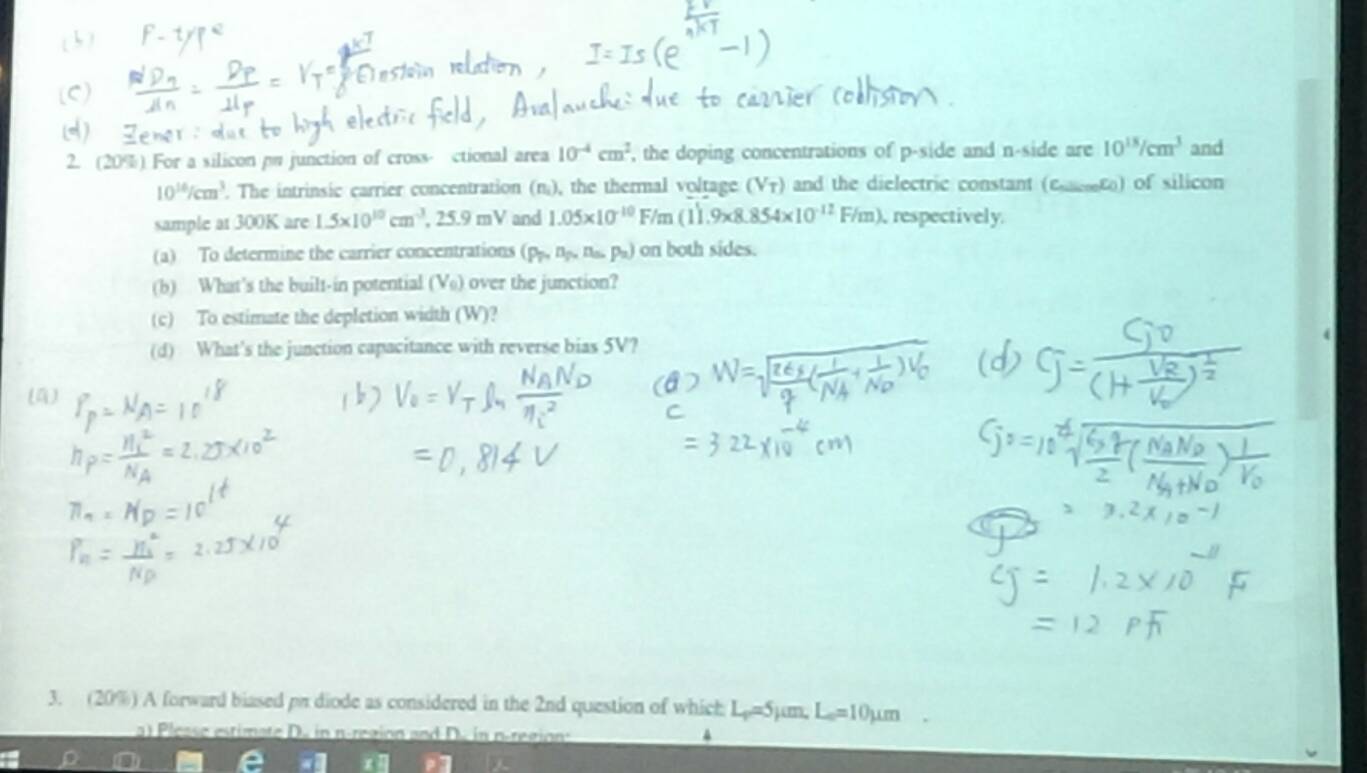 (b) P-type
(c) Dn/μn = Dp/μp = VT = Einstein relation, I = Is(e -1)
(d) Zener: due to high electric field, Avalanche: due to carrier collision.
2. (20%) For a silicon pn junction of cross- ctional area 10⁻⁴ cm², the doping concentrations of p-side and n-side are 10¹⁸/cm³ and
10¹⁶/cm³. The intrinsic carrier concentration (nᵢ), the thermal voltage (VT) and the dielectric constant (εsiliconε0) of silicon
sample at 300K are 1.5×10¹⁰ cm⁻³, 25.9 mV and 1.05×10⁻¹⁰ F/m (11.9×8.854×10⁻¹² F/m), respectively.
(a) To determine the carrier concentrations (pp, np, nn, pn) on both sides.
(b) What's the built-in potential (V0) over the junction?
(c) To estimate the depletion width (W)?
(d) What's the junction capacitance with reverse bias 5V?
(a) Pp = NA = 10¹⁸
np = ni²/NA = 2.25×10²
nn = ND = 10¹⁶
Pn = ni²/ND = 2.25×10⁴
(b) V0 = VT ln NAND/ni²
= 0,814 V
c W = √(2εs/q (1/NA + 1/ND) V0)
= 3.22×10⁻⁴ cm
(d) Cj = Cj0/(1+VR/V0)^½
Cj0 = 10⁻⁴ √(εsq/2 (NAND/(NA+ND)) 1/V0)
= 3.2×10⁻¹
Cj = 1.2×10⁻¹¹ F
= 12 pF
3. (20%) A forward biased pn diode as considered in the 2nd question of which: Lp=5μm, Ln=10μm .
a) Please estimate Dp in n-region and Dn in p-region: